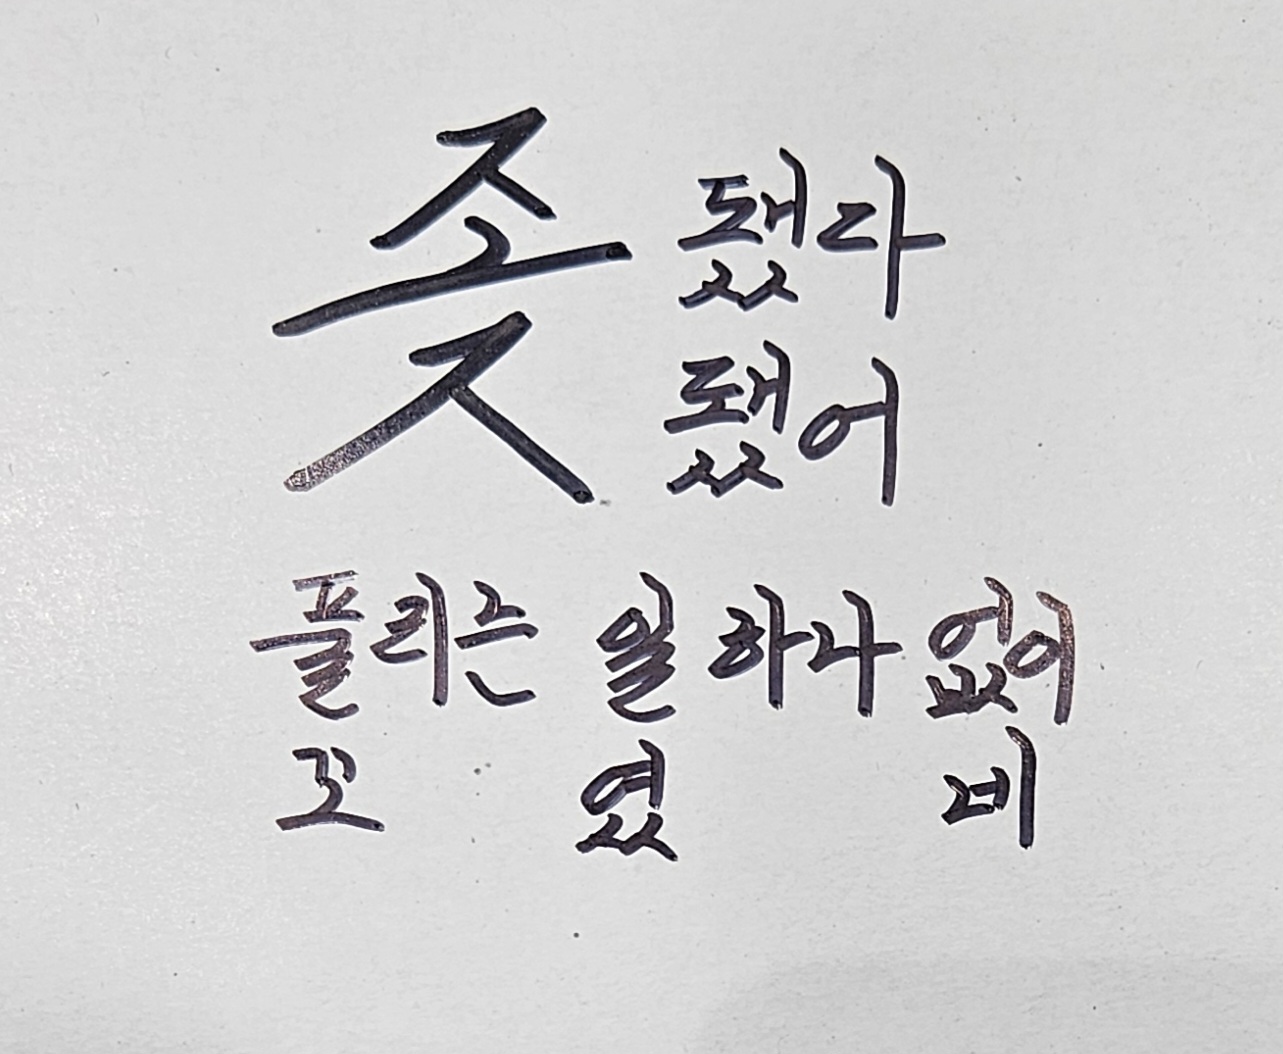 좆 됐다
됐어
풀리는 일 하나 없이
꼬 였 네